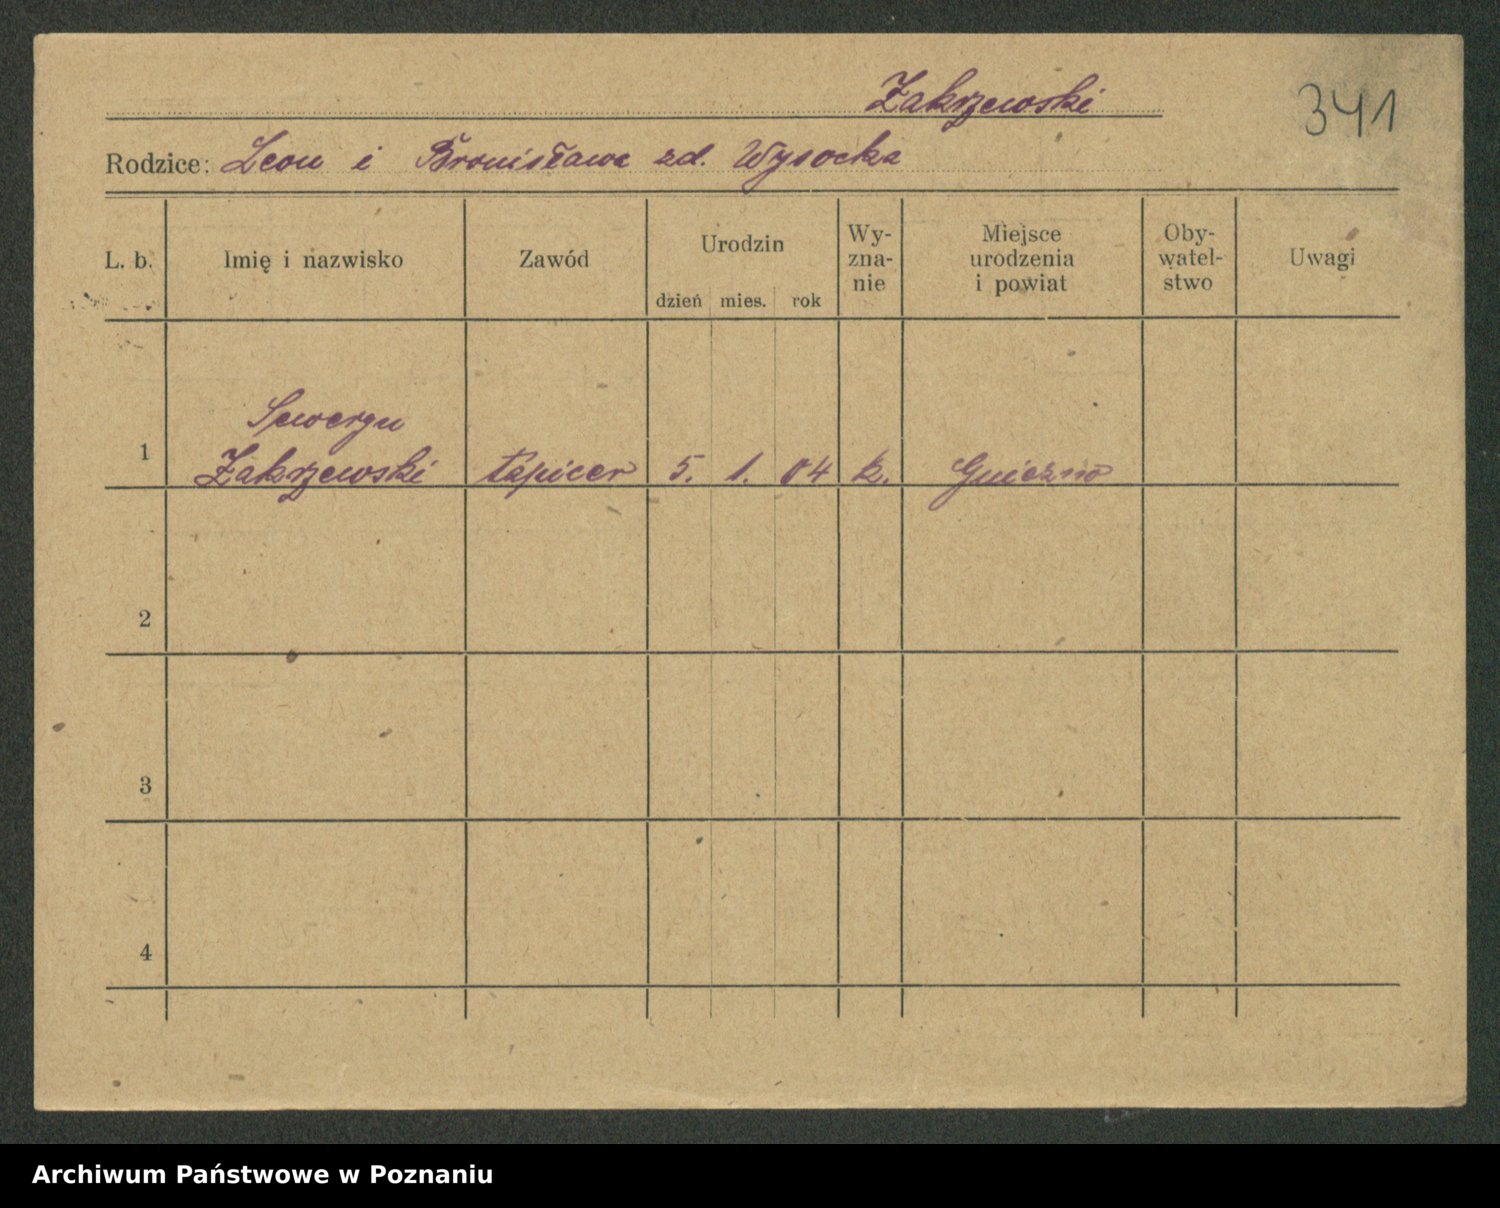 Zakrzewski
341
Rodzice: Leon i Bronisława zd. Wysocka
L. b. Imię i nazwisko Zawód Urodzin dzień mies. rok Wy-zna-nie Miejsce urodzenia i powiat Oby-watel-stwo Uwagi
Seweryn
1 Zakrzewski tapicer 5. 1. 04 k. Gniezno
2
3
4
Archiwum Państwowe w Poznaniu